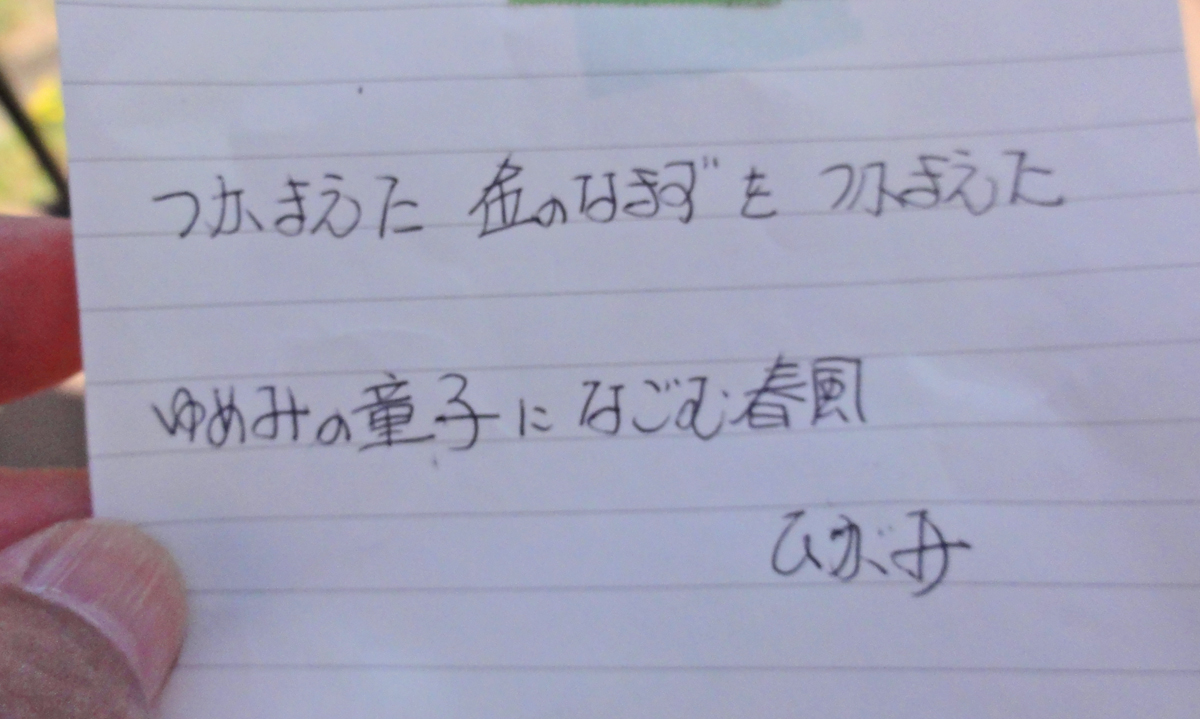 つかまえた 金のなまずを つかまえた
ゆめみの童子に なごむ春風